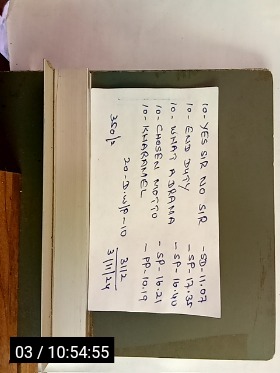 10- YES SIR NO SIR - SD-11.07
10- END DUTY - SP-17.35
10- WHAT A DRAMA - SP-16.40
10- CHOSEN MOTTO - SP-16.21
10- KHARAMEL - PP-10.19
20-D w/P-10 3112
350/- 3/11/24
03 / 10:54:55